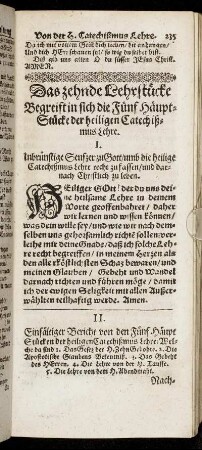 Von der H. Catechismus Lehre. 235
Da ich mit
und dich HErr
Das gib uns allen O du süsser JEsus Christ.
AMEN.
Das zehnde Lehrstücke
Begreifft in sich die Fünf Häupt-
Stücke der heiligen Catechis-
mus Lehre.
I.
Inbrünstige Seufzer zu Gott umb die heilige
Catechismus Lehre recht zu fassen/ und dar-
nach Christlich zu leben.
HEiliger GOtt! der du uns dei-
ne heilsame Lehre in deinem
Worte geoffenbahret / daher
wir lernen und wissen können/
was dein wille sey/ und wie wir nach dem-
selben uns gehorsamlich richten sollen: ver-
leihe mir deine Gnade/ daß ich solche Leh-
re recht begreiffen / in meinem Herzen als
den alle köstlichsten Schaz bewaren/ und
meinen Glauben / Gebeht und Wandel
darnach richten und führen möge / damit
ich der ewigen Seligkeit mit allen Außer-
wählten teilhaftig werde. Amen.
II.
Einfältiger Bericht von den Fünf Häupt
Stücken der heiligen Catechismus Lehre: Wel-
che da sind 1. Das Gesez der H. Zehn Gebohte. 2. Die
Apostolische Glaubens Bekentniß. 3. Das Gebeht
des HErren. 4. Die Lehre von der H. Tauffe.
5. Die Lehre von dem H. Abendmahl.
Nach-